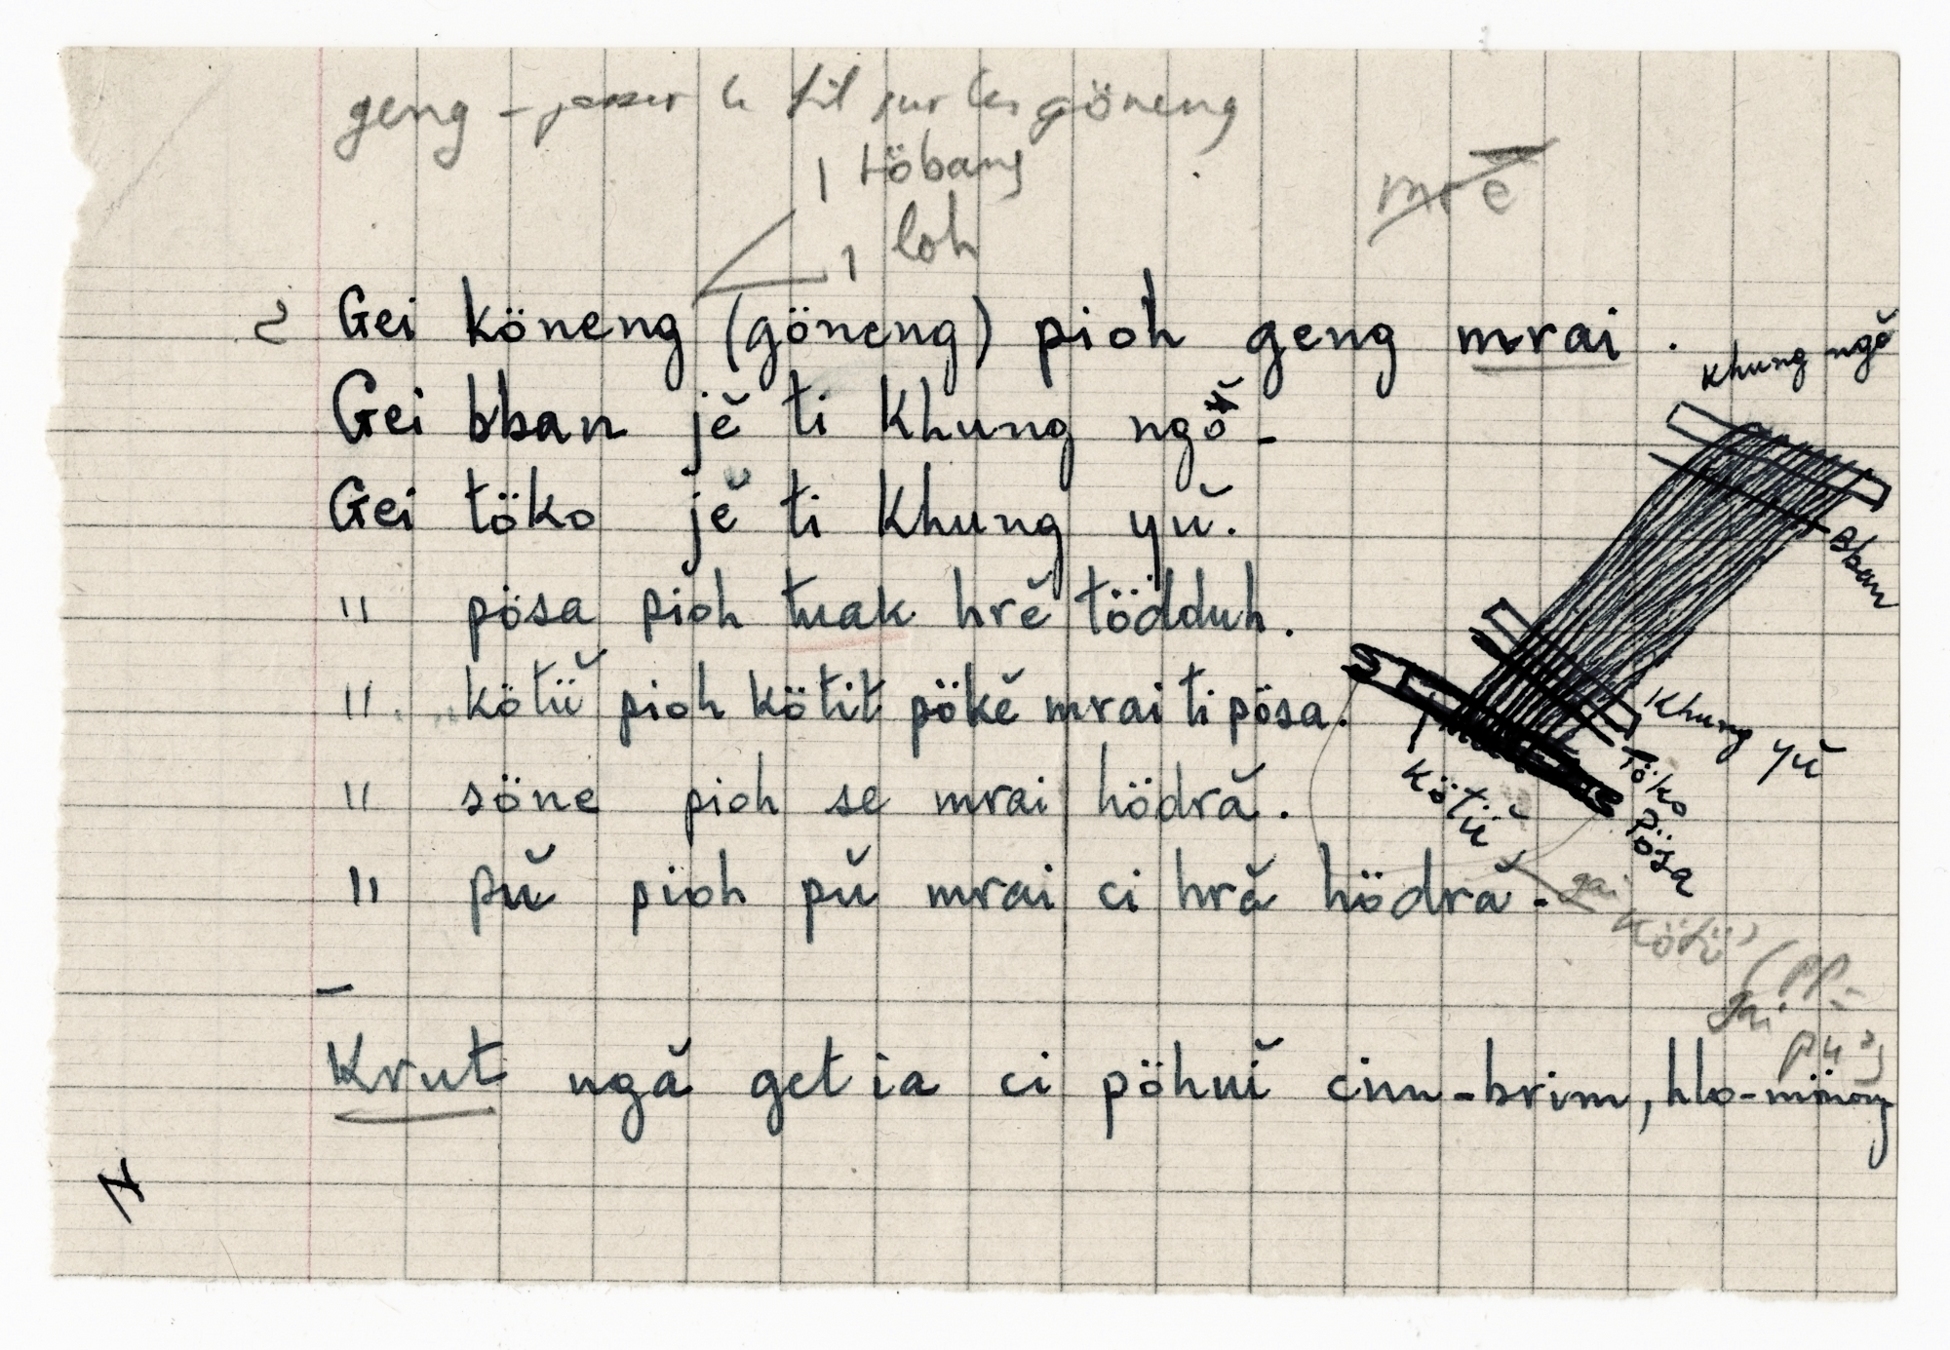 geng - passer le fil sur les göneng
1 töbang
mrĕ
1 loh
2 Gei köneng (göneng) pioh geng mrai.
Gei bban jĕ ti Khung ngŏ -
Gei töko jĕ ti Khung yŭ.
" pösa pioh tuak hrĕ tödduh.
" kötŭ̈ pioh kötit pökĕ mrai ti pösa.
" söne pioh se mrai hödră.
" pŭ pioh pŭ mrai ci hră hödră -
Khung ngŏ
Bban
Khung yŭ
Töko
Pösa
Kötŭ̈
gai
Kötŭ̈
gai
pŭ
-
Krut ngă get ia ci pöhuĭ cim-brim, hlo-mönong
N